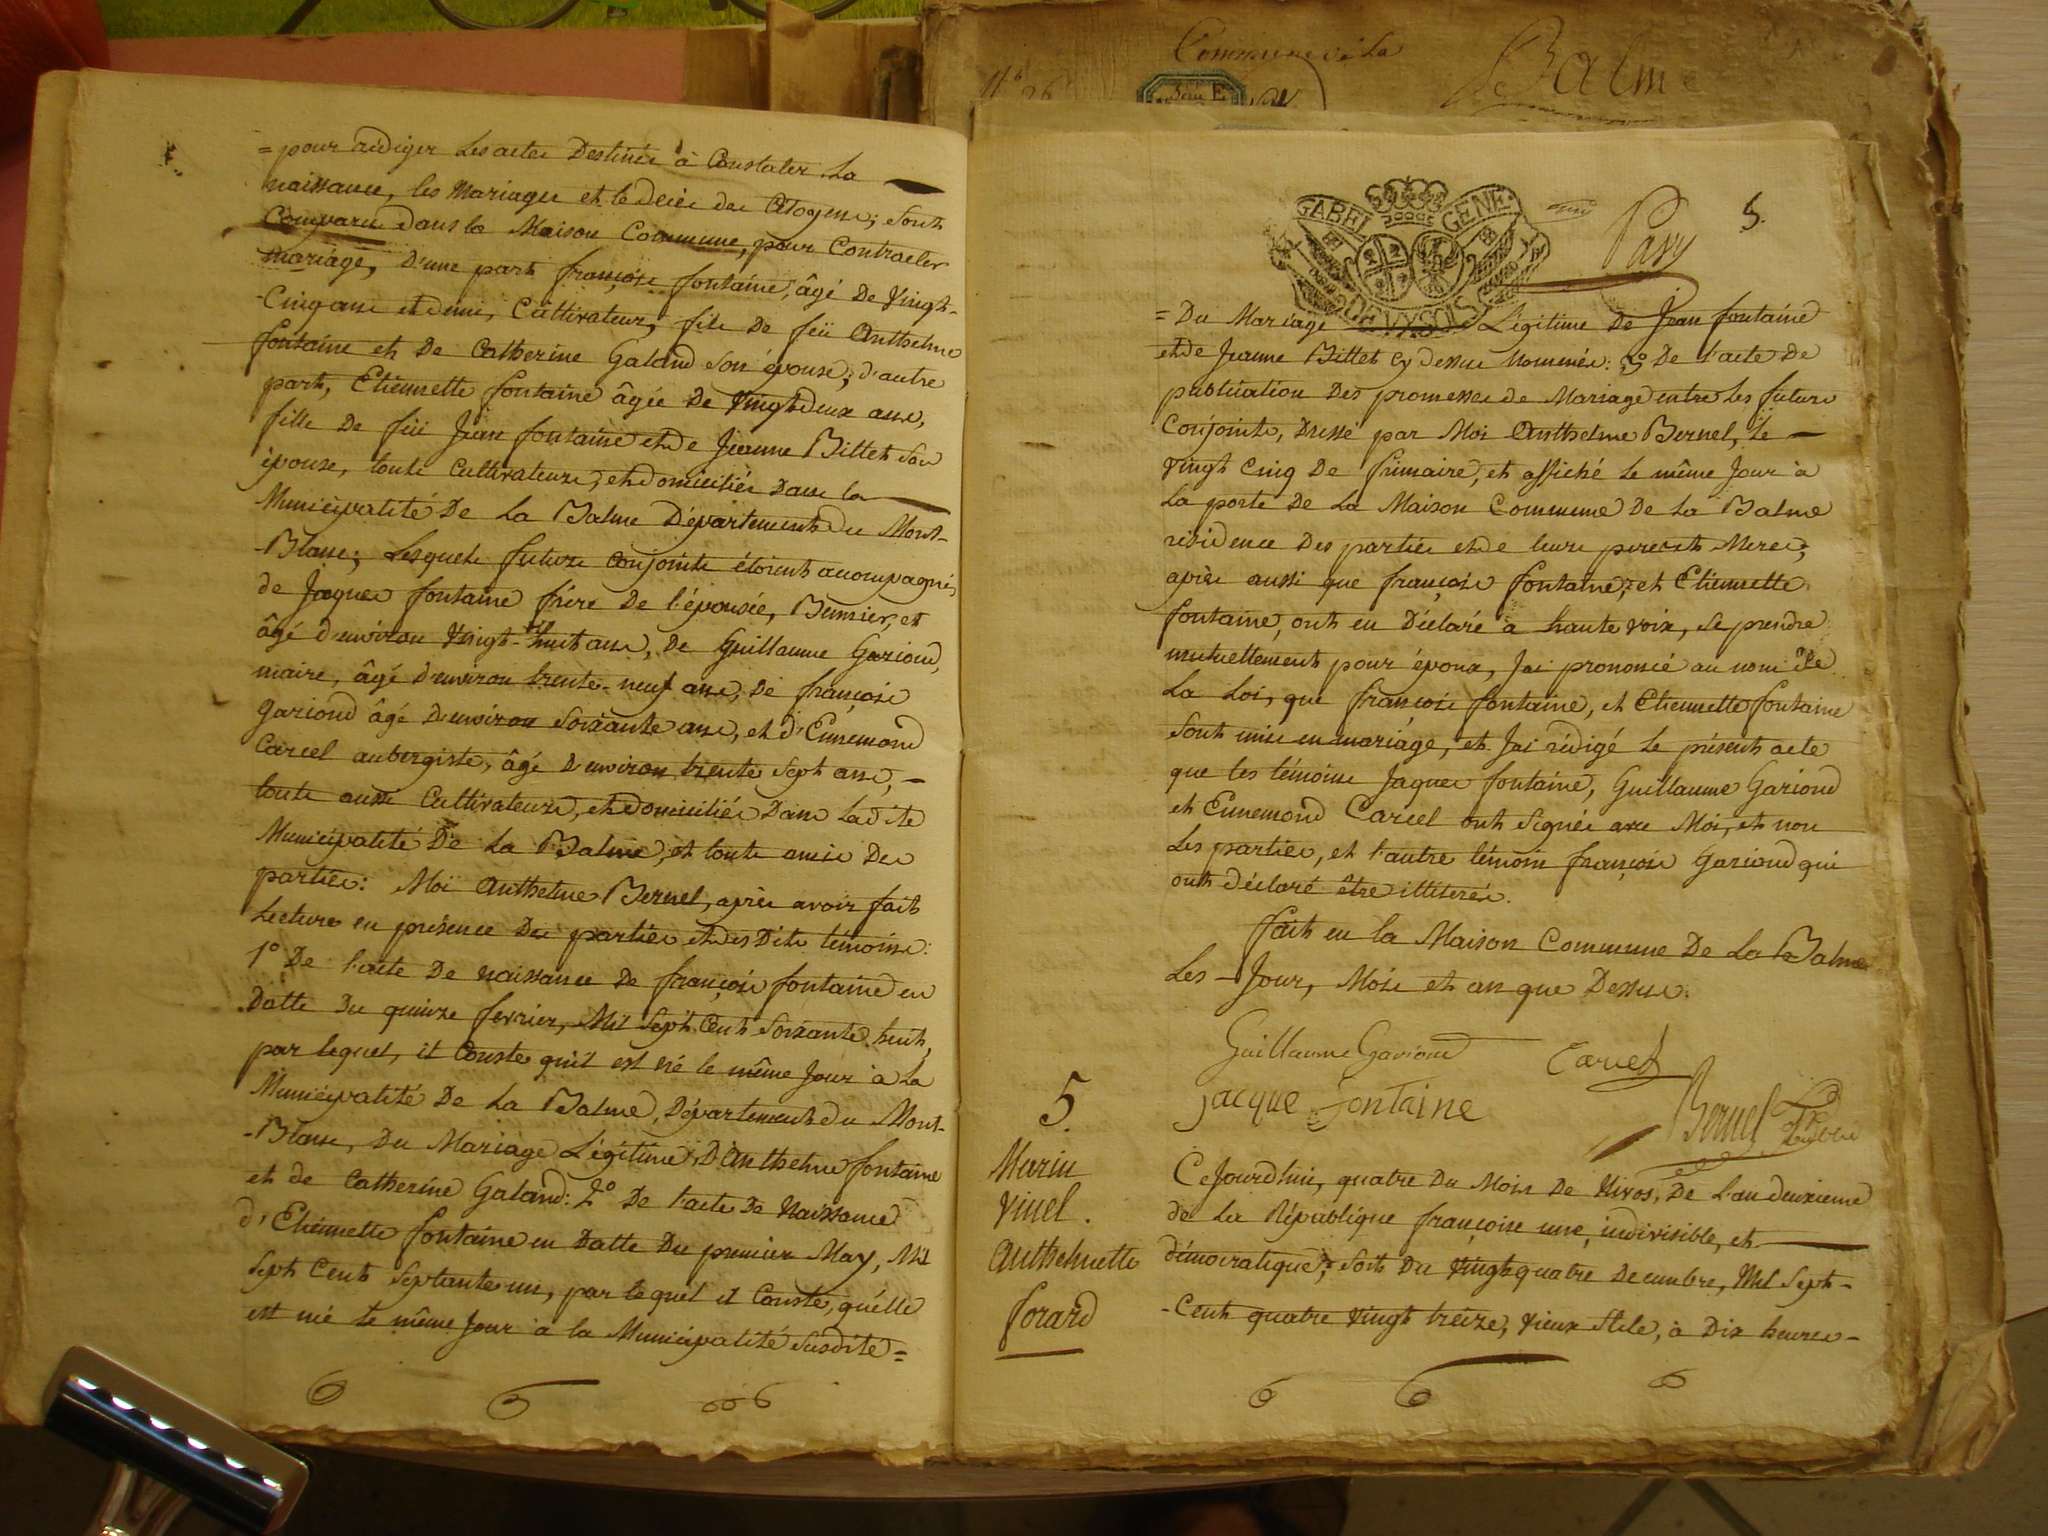 Commune de La
Balme
Série E
= pour rédiger les actes Destinés à Constater La
naissance, les Mariages et le décès des Citoyens; sont
Comparus dans la Maison Commune, pour Contracter
mariage, D'une part françois fontaine, âgé De Vingt-
-Cinq ans et demi, Cultivateur, fils De feü Anthelme
fontaine et De Catherine Galand son épouse; d'autre
part, Etiennette fontaine âgée De Vingt deux ans,
fille De feü Jean fontaine et de Jeanne Billet son
épouse, touts Cultivateurs, et domiciliés Dans la
Municipalité De La Balme Département du Mont-
-Blanc; Lesquels futurs conjoints étoient acompagnés
de Jaques fontaine frère De l'épousée, et
âgé d'environ Vingt-huit ans, De Guillaume Gariond,
maire, âgé d'environ trente-neuf ans, De françois
Gariond âgé D'environ Soixante ans, et d'Ennemond
Carcel aubergiste, âgé D'environ trente sept ans, -
touts aussi Cultivateurs, et domiciliés Dans Ladite
Municipalité De La Balme, et touts amis Des
parties: Moi Anthelme Bernel, après avoir fait
Lecture en présence Des parties et des Dits témoins:
1° De l'acte De naissance De françois fontaine en
Datte Du quinze fevrier, Mil Sept Cent Soixante huit,
par lequel, il Conste qu'il est né le même Jour à La
Municipalité De La Balme, Département du Mont-
-Blanc, Du Mariage Légitime D'Anthelme fontaine
et de Catherine Galand: 2° De l'acte De Naissance
d'Etiennette fontaine en Datte Du premier May, Mil
Sept Cent Septante un, par lequel il Conste, qu'elle
est née le même Jour à la Municipalité Susdite =
GABEL GENE.
5.
= Du Mariage Légitime De Jean fontaine
et de Jeanne Billet cy dessus Nommés: 3° De l'acte De
publication Des promesses de Mariage entre les futurs
Conjoints, Dressé par Moi Anthelme Bernel, le
Vingt cinq De frimaire, et affiché le même Jour à
La porte De La Maison Commune De La Balme
résidence Des parties et de leurs peres et Meres;
après aussi que françois fontaine, et Etiennette
fontaine, ont eu Déclaré à haute voix, se prendre
mutuellement pour époux, J'ai prononcé au nom De
La Loi, que françois fontaine, et Etiennette fontaine
Sont unis en mariage, et J'ai rédigé le présent acte
que les témoins Jaques fontaine, Guillaume Gariond
et Ennemond Carcel ont Signés avec Moi, et non
Les parties, et l'autre témoin françois Gariond qui
ont déclaré être illiterés.
fait en la Maison Commune De La Balme
Les Jour, Mois et an que Dessus.
Guillaume Gariond Carcel
jacque fontaine
Bernel
5.
Marin
Vinel.
Anthelmette
forard
Cejourd'hui, quatre Du Mois De Nivos, De L'an deuxieme
de La République françoise une, indivisible, et
démocratique, soit Du Vingt quatre Decembre, Mil Sept-
-Cent quatre Vingt treize, Vieux Stile, à Dix heures-